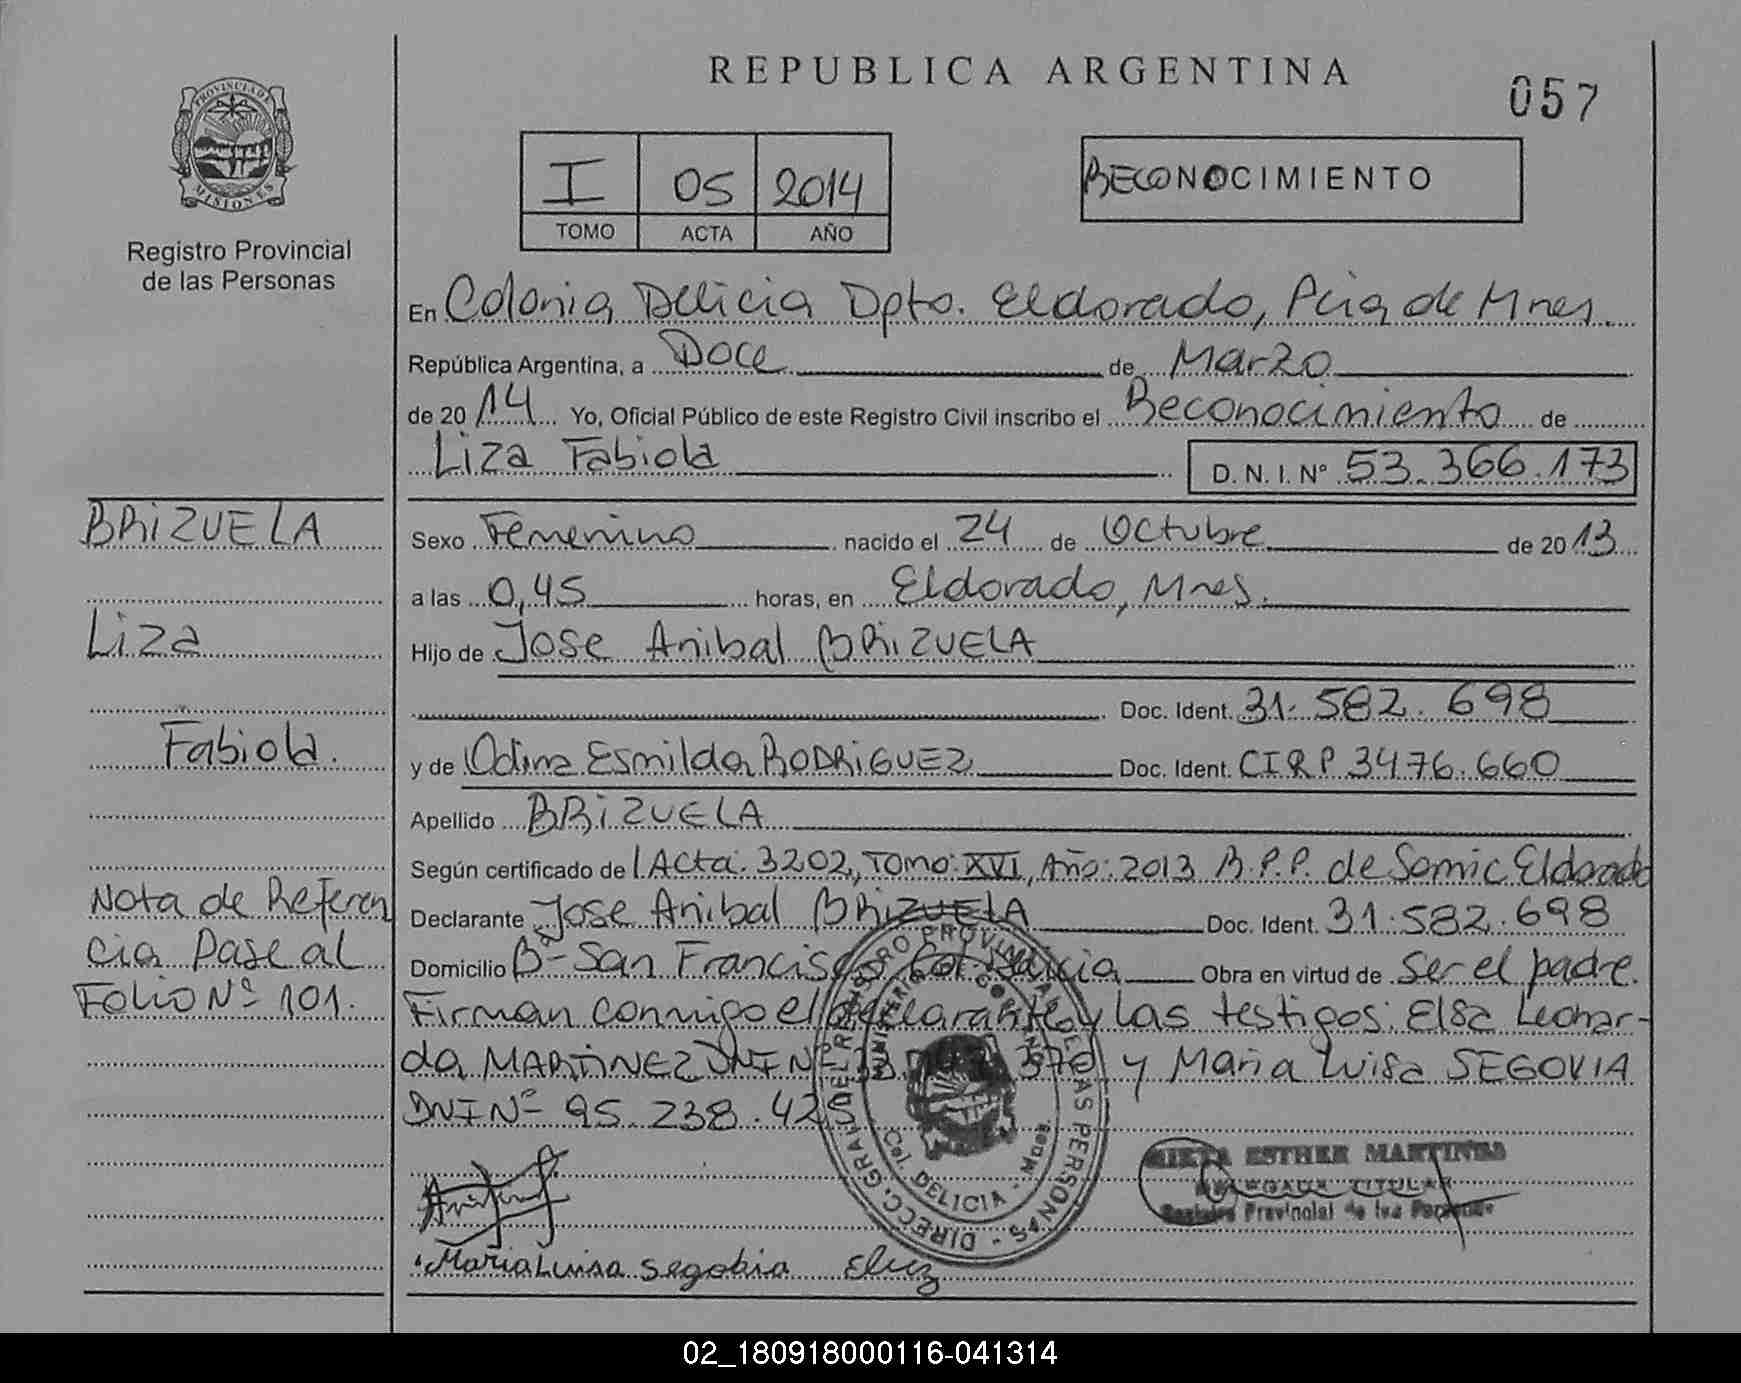 REPUBLICA ARGENTINA
057
PROVINCIA DE
MISIONES
Registro Provincial
de las Personas
I 05 2014
TOMO ACTA AÑO
RECONOCIMIENTO
En Colonia Delicia Dpto. Eldorado, Pcia de Mnes.
República Argentina, a Doce de Marzo
de 2014 Yo, Oficial Público de este Registro Civil inscribo el Reconocimiento de
Liza Fabiola D. N. I. N° 53.366.173
BRIZUELA
Liza
Fabiola.
Nota de Referen
cia Pase al
Folio Nº 101.
Sexo Femenino nacido el 24 de Octubre de 2013
a las 0,45 horas, en Eldorado, Mnes.
Hijo de Jose Anibal BRIZUELA
Doc. Ident. 31.582.698
y de Odina Esmilda RODRIGUEZ Doc. Ident. CIRP 3476.660
Apellido BRIZUELA
Según certificado de Acta: 3202, Tomo: XVI, Año: 2013 R.P.P. de Samic Eldorado
Declarante Jose Anibal BRIZUELA Doc. Ident. 31.582.698
Domicilio Bº San Francisco Col. Delicia Obra en virtud de ser el padre.
Firman conmigo el declarante y las testigos: Elsa Leonar-
da MARTINEZ DNI Nº 370 y Maria Luisa SEGOVIA
DNI Nº 95.238.425
DIRECC. GRAL. DEL REGISTRO PROVINCIAL DE LAS PERSONAS
Col. DELICIA - Mnes.
MIRTA ESTHER MARTINES
TITULAR
Registro Provincial de las Personas
Maria Luisa segobia
02_180918000116-041314